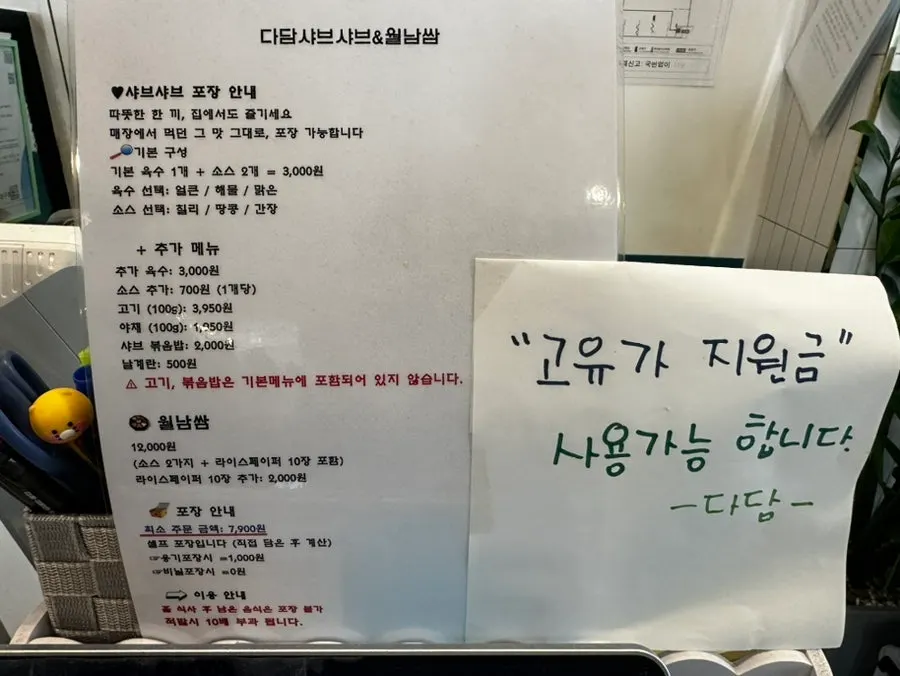 다담샤브샤브&월남쌈
♥샤브샤브 포장 안내
따뜻한 한 끼, 집에서도 즐기세요
매장에서 먹던 그 맛 그대로, 포장 가능합니다
기본 구성
기본 육수 1개 + 소스 2개 = 3,000원
육수 선택: 얼큰 / 해물 / 맑은
소스 선택: 칠리 / 땅콩 / 간장
+ 추가 메뉴
추가 육수: 3,000원
소스 추가: 700원 (1개당)
고기 (100g): 3,950원
야채 (100g): 1,950원
샤브 볶음밥: 2,000원
날계란: 500원
⚠ 고기, 볶음밥은 기본메뉴에 포함되어 있지 않습니다.
월남쌈
12,000원
(소스 2가지 + 라이스페이퍼 10장 포함)
라이스페이퍼 10장 추가: 2,000원
포장 안내
최소 주문 금액: 7,900원
셀프 포장입니다 (직접 담은 후 계산)
☞용기포장시 =1,000원
☞비닐포장시 =0원
이용 안내
식사 후 남은 음식은 포장 불가
적발시 10배 부과 됩니다.
"고유가 지원금"
사용가능 합니다.
-다담-
국번없이